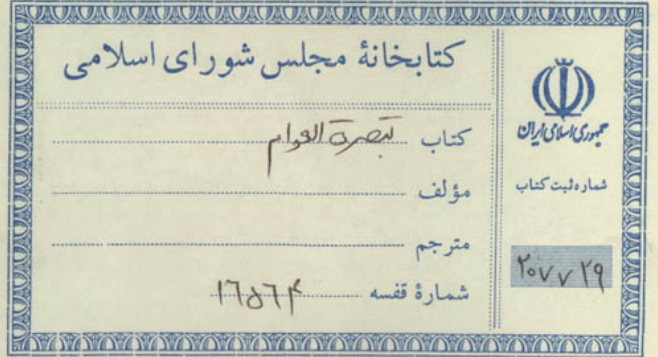 کتابخانهٔ مجلس شورای اسلامی
کتاب تبصرة العوام
مؤلف
مترجم
شمارهٔ قفسه ۱۶۵۶۴
جمهوری اسلامی ایران
شماره ثبت کتاب
۲۰۷۷۲۹